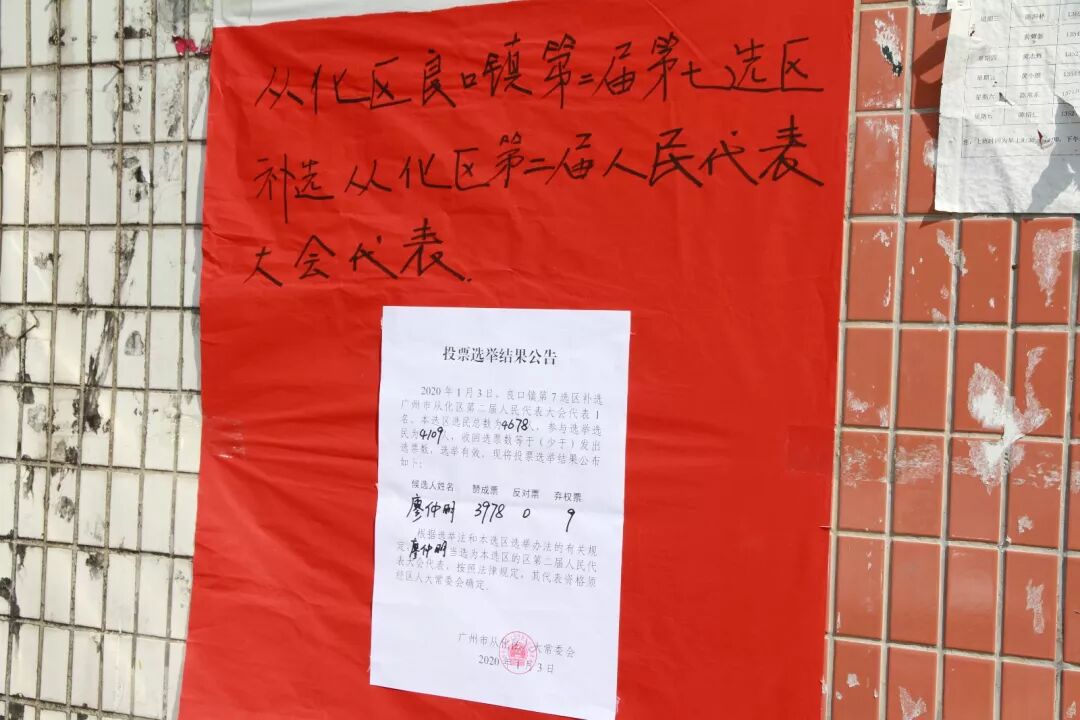 从化区良口镇第二届第七选区
补选从化区第二届人民代表
大会代表.
投票选举结果公告
2020年1月3日，良口镇第7选区补选
广州市从化区第二届人民代表大会代表1
名。本选区选民总数为4678人，参与选举选
民为4109人，收回选票数等于（少于）发出
选票数，选举有效，现将投票选举结果公布
如下：
候选人姓名 赞成票 反对票 弃权票
廖仲明 3978 0 9
根据选举法和本选区选举办法的有关规
定，廖仲明当选为本选区的区第二届人民代
表大会代表，按照法律规定，其代表资格须
经区人大常委会确定。
广州市从化区人大常委会
2020年1月3日
星期四
星期六